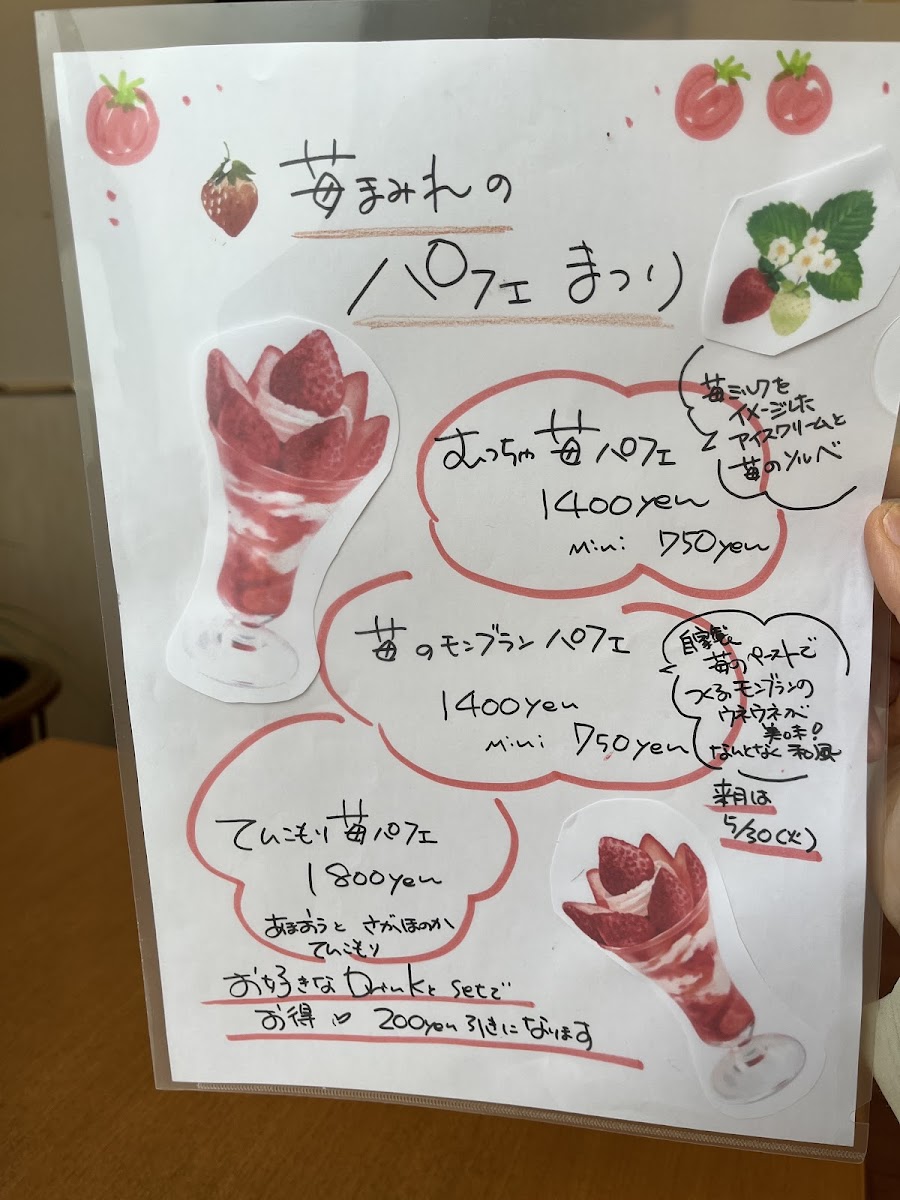 苺まみれの
パフェまつり
むっちゃ苺パフェ
1400yen
mini 750yen
苺ミルクを
イメージした
アイスクリームと
苺のソルベ
苺のモンブランパフェ
1400yen
mini 750yen
自家製
苺のペーストで
つくるモンブランの
ウネウネが
美味！
なんとなく和風
来月は
5/30(火)
てんこもり苺パフェ
1800yen
あまおうとさがほのか
てんこもり
お好きなDrinkとsetで
お得♡ 200yen引きになります